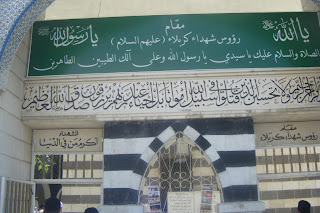 يا الله
مقام
رؤوس شهداء كربلاء (عليهم السلام)
يا رسول الله
الصلاة والسلام عليك يا سيدي يا رسول الله وعلى آلك الطيبين الطاهرين
ولا تحسبن الذين قتلوا في سبيل الله أمواتا بل أحياء عند ربهم يرزقون صدق الله العظيم
مقام
رؤوس شهداء كربلاء
الشهداء
أكرم من في الدنيا